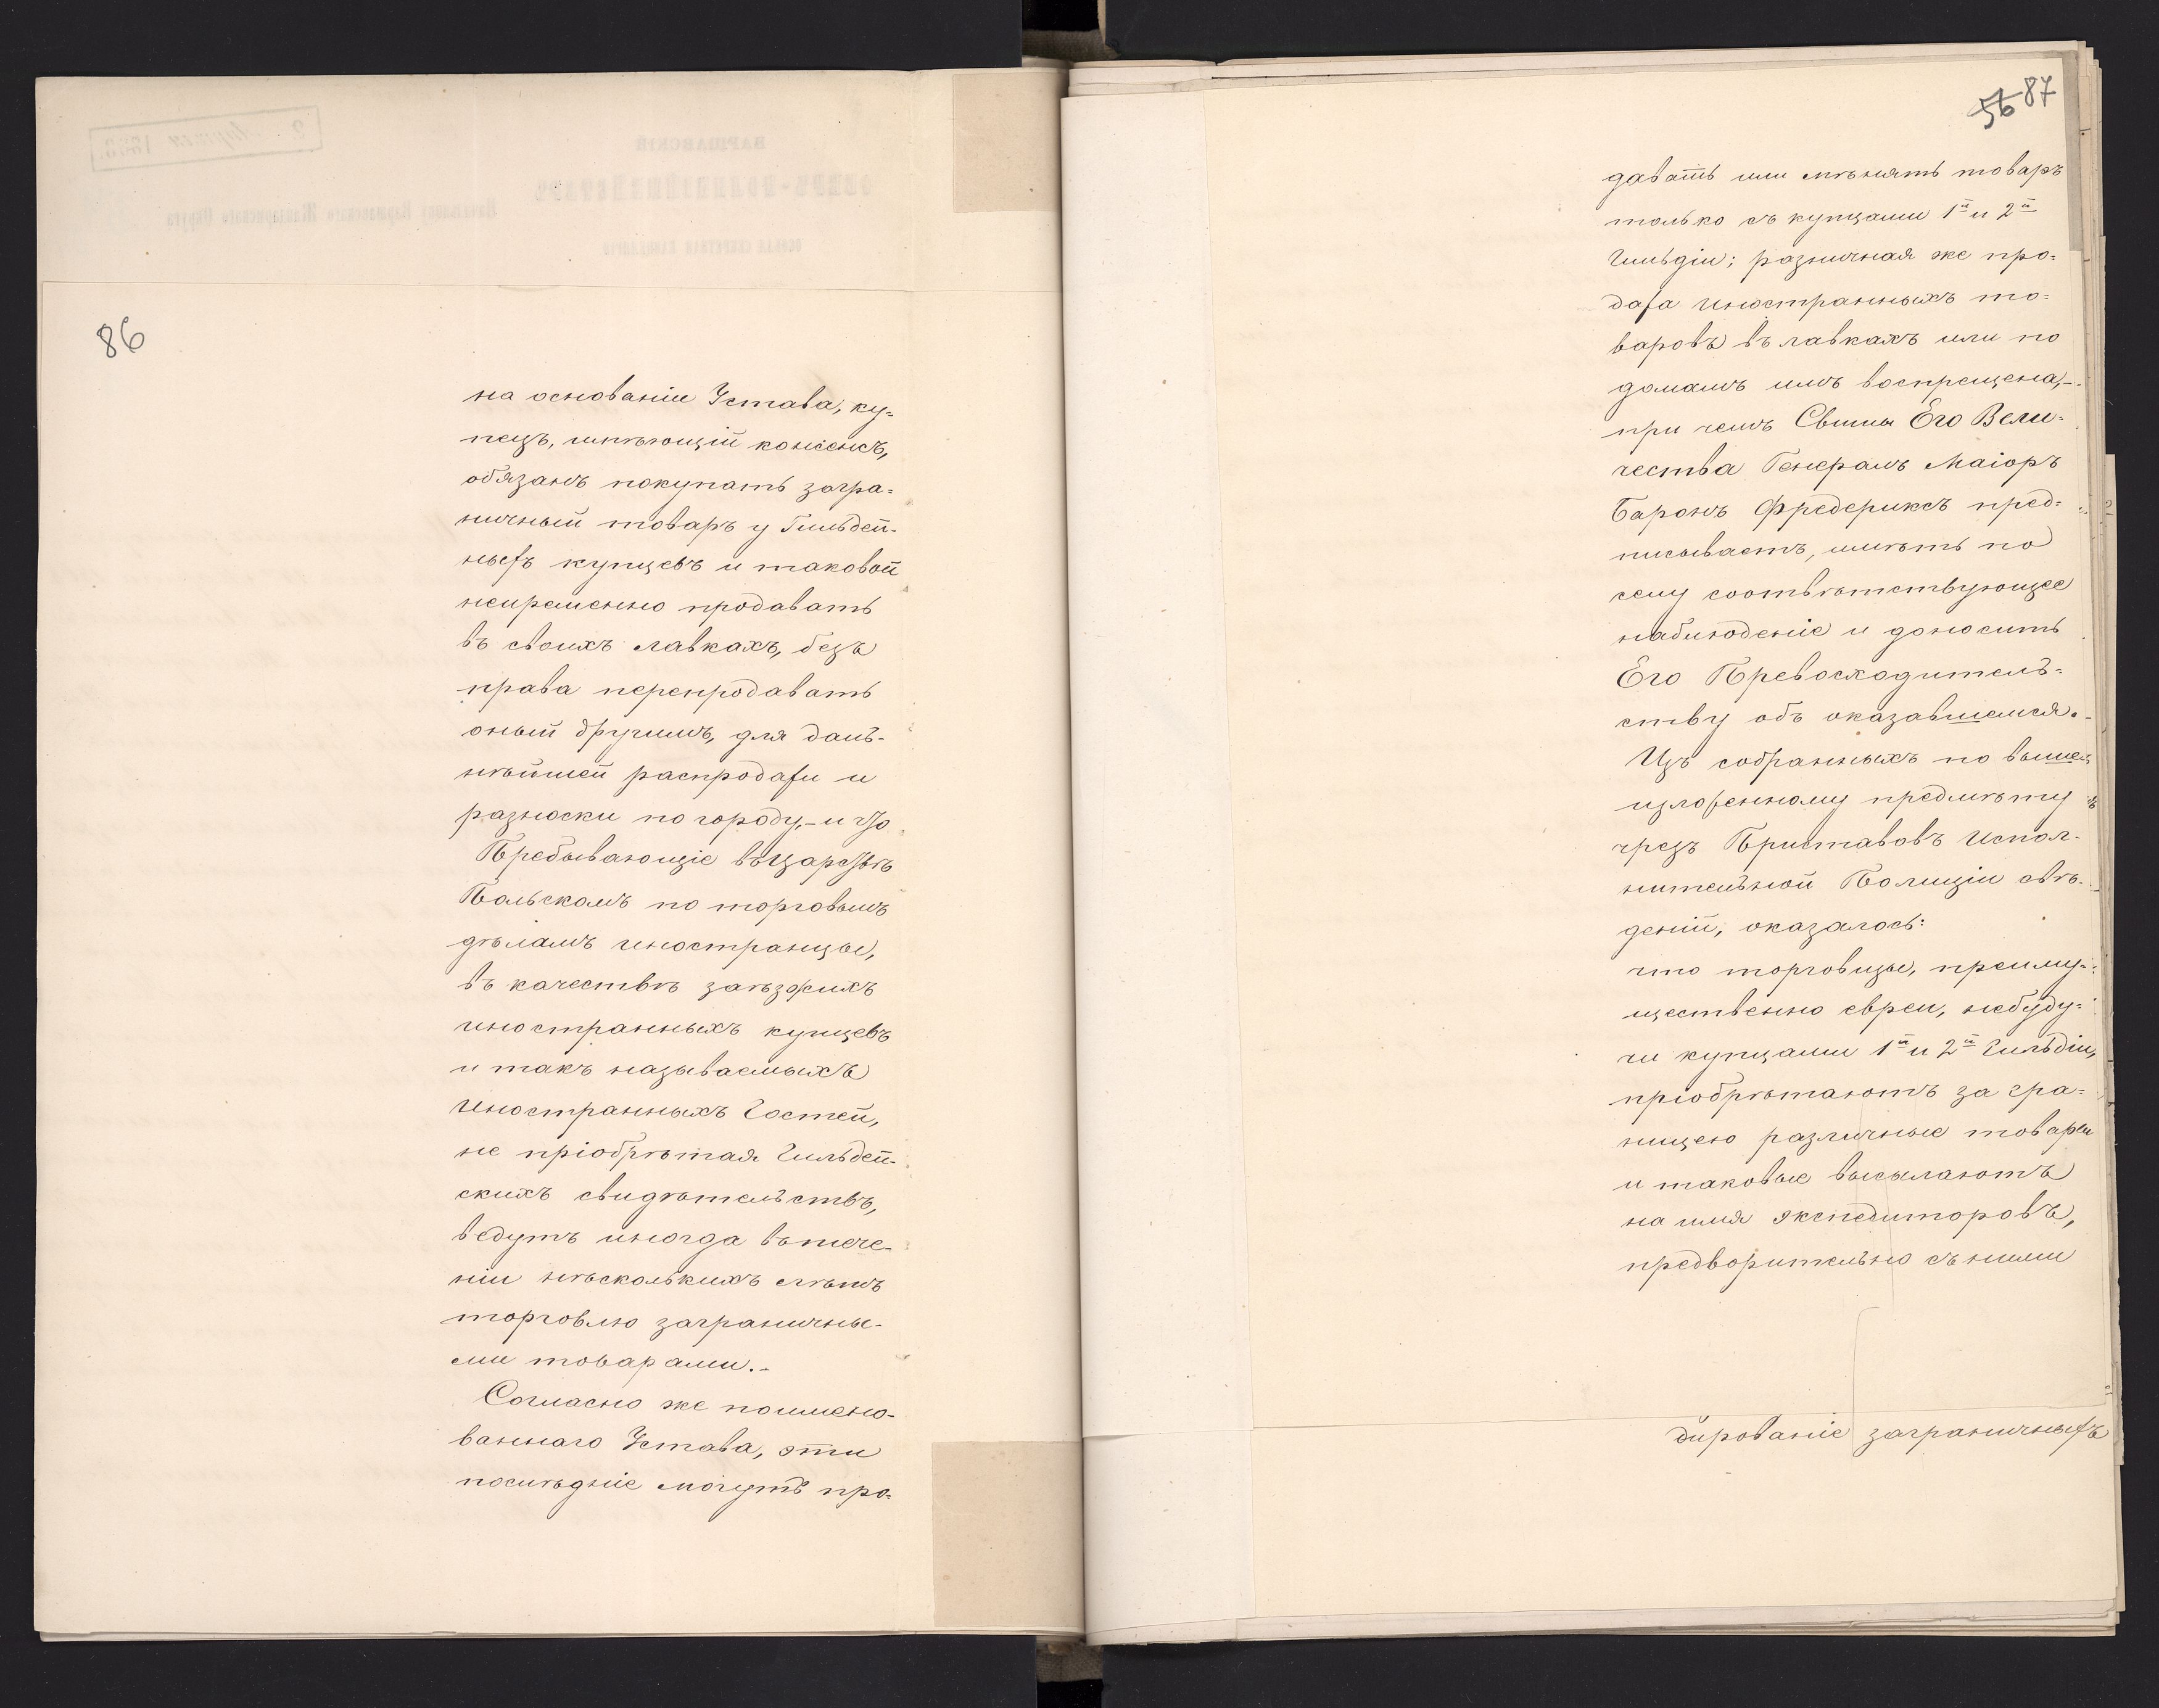 86
на основаніи Устава, ку=
пецъ, имѣющій консенсъ,
обязанъ покупать загра=
ничный товаръ у Гильдей-
ныхъ купцевъ и таковой
непременно продавать
въ своихъ лавкахъ, безъ
права перепродавать
оный другимъ, для даль-
нѣйшей распродажи и
разноски по городу,- и что
Пребывающіе въ Царствѣ
Польскомъ по торговымъ
дѣламъ иностранцы,
въ качествѣ заѣзжихъ
иностранныхъ купцевъ
и такъ называемыхъ
Иностранныхъ Гостей,
не пріобрѣтая Гильдей-
скихъ свидѣтельствъ,
ведутъ иногда въ тече-
ніи нѣсколькихъ лѣтъ
торговлю заграничны-
ми товарами.-
Согласно же поимено-
ваннаго Устава, эти
послѣдніе могутъ про=
56 87
давать или мѣнять товаръ
только съ купцами 1й и 2й
Гильдіи; розничная же про=
дажа иностранныхъ то=
варовъ въ лавкахъ или по
домамъ имъ воспрещена,-
при чемъ Свиты Его Вели=
чества Генералъ Маіоръ
Баронъ Фредериксъ пред=
писываетъ, имѣть по
сему соотвѣтствующее
наблюденіе и доносить
Его Превосходитель=
ству объ оказавшемся.-
Изъ собранныхъ по выше=
изложенному предмѣту
чрезъ Приставовъ Испол-
нительной Полиціи свѣ-
деній, оказалось:
что торговцы, преиму-
щественно евреи, небуду=
чи купцами 1й и 2й Гильдіи,
пріобрѣтаютъ за гра=
ницею различные товары
и таковые высылаютъ
на имя экспедиторовъ,
предворительно съ ними
дированіе заграничныхъ